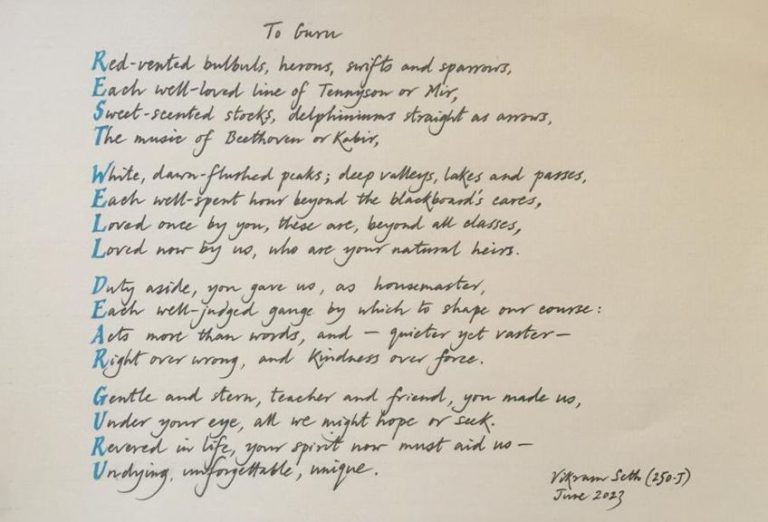 To Guru
Red-vented bulbuls, herons, swifts and sparrows,
Each well-loved line of Tennyson or Mir,
Sweet-scented stocks, delphiniums straight as arrows,
The music of Beethoven or Kabir,
White, dawn-flushed peaks; deep valleys, lakes and passes,
Each well-spent hour beyond the blackboard's cares,
Loved once by you, these are, beyond all classes,
Loved now by us, who are your natural heirs.
Duty aside, you gave us, as housemaster,
Each well-judged gauge by which to shape our course:
Acts more than words, and – quieter yet vaster –
Right over wrong, and kindness over force.
Gentle and stern, teacher and friend, you made us,
Under your eye, all we might hope or seek.
Revered in life, your spirit now must aid us –
Undying, unforgettable, unique.
Vikram Seth (250-J)
June 2023